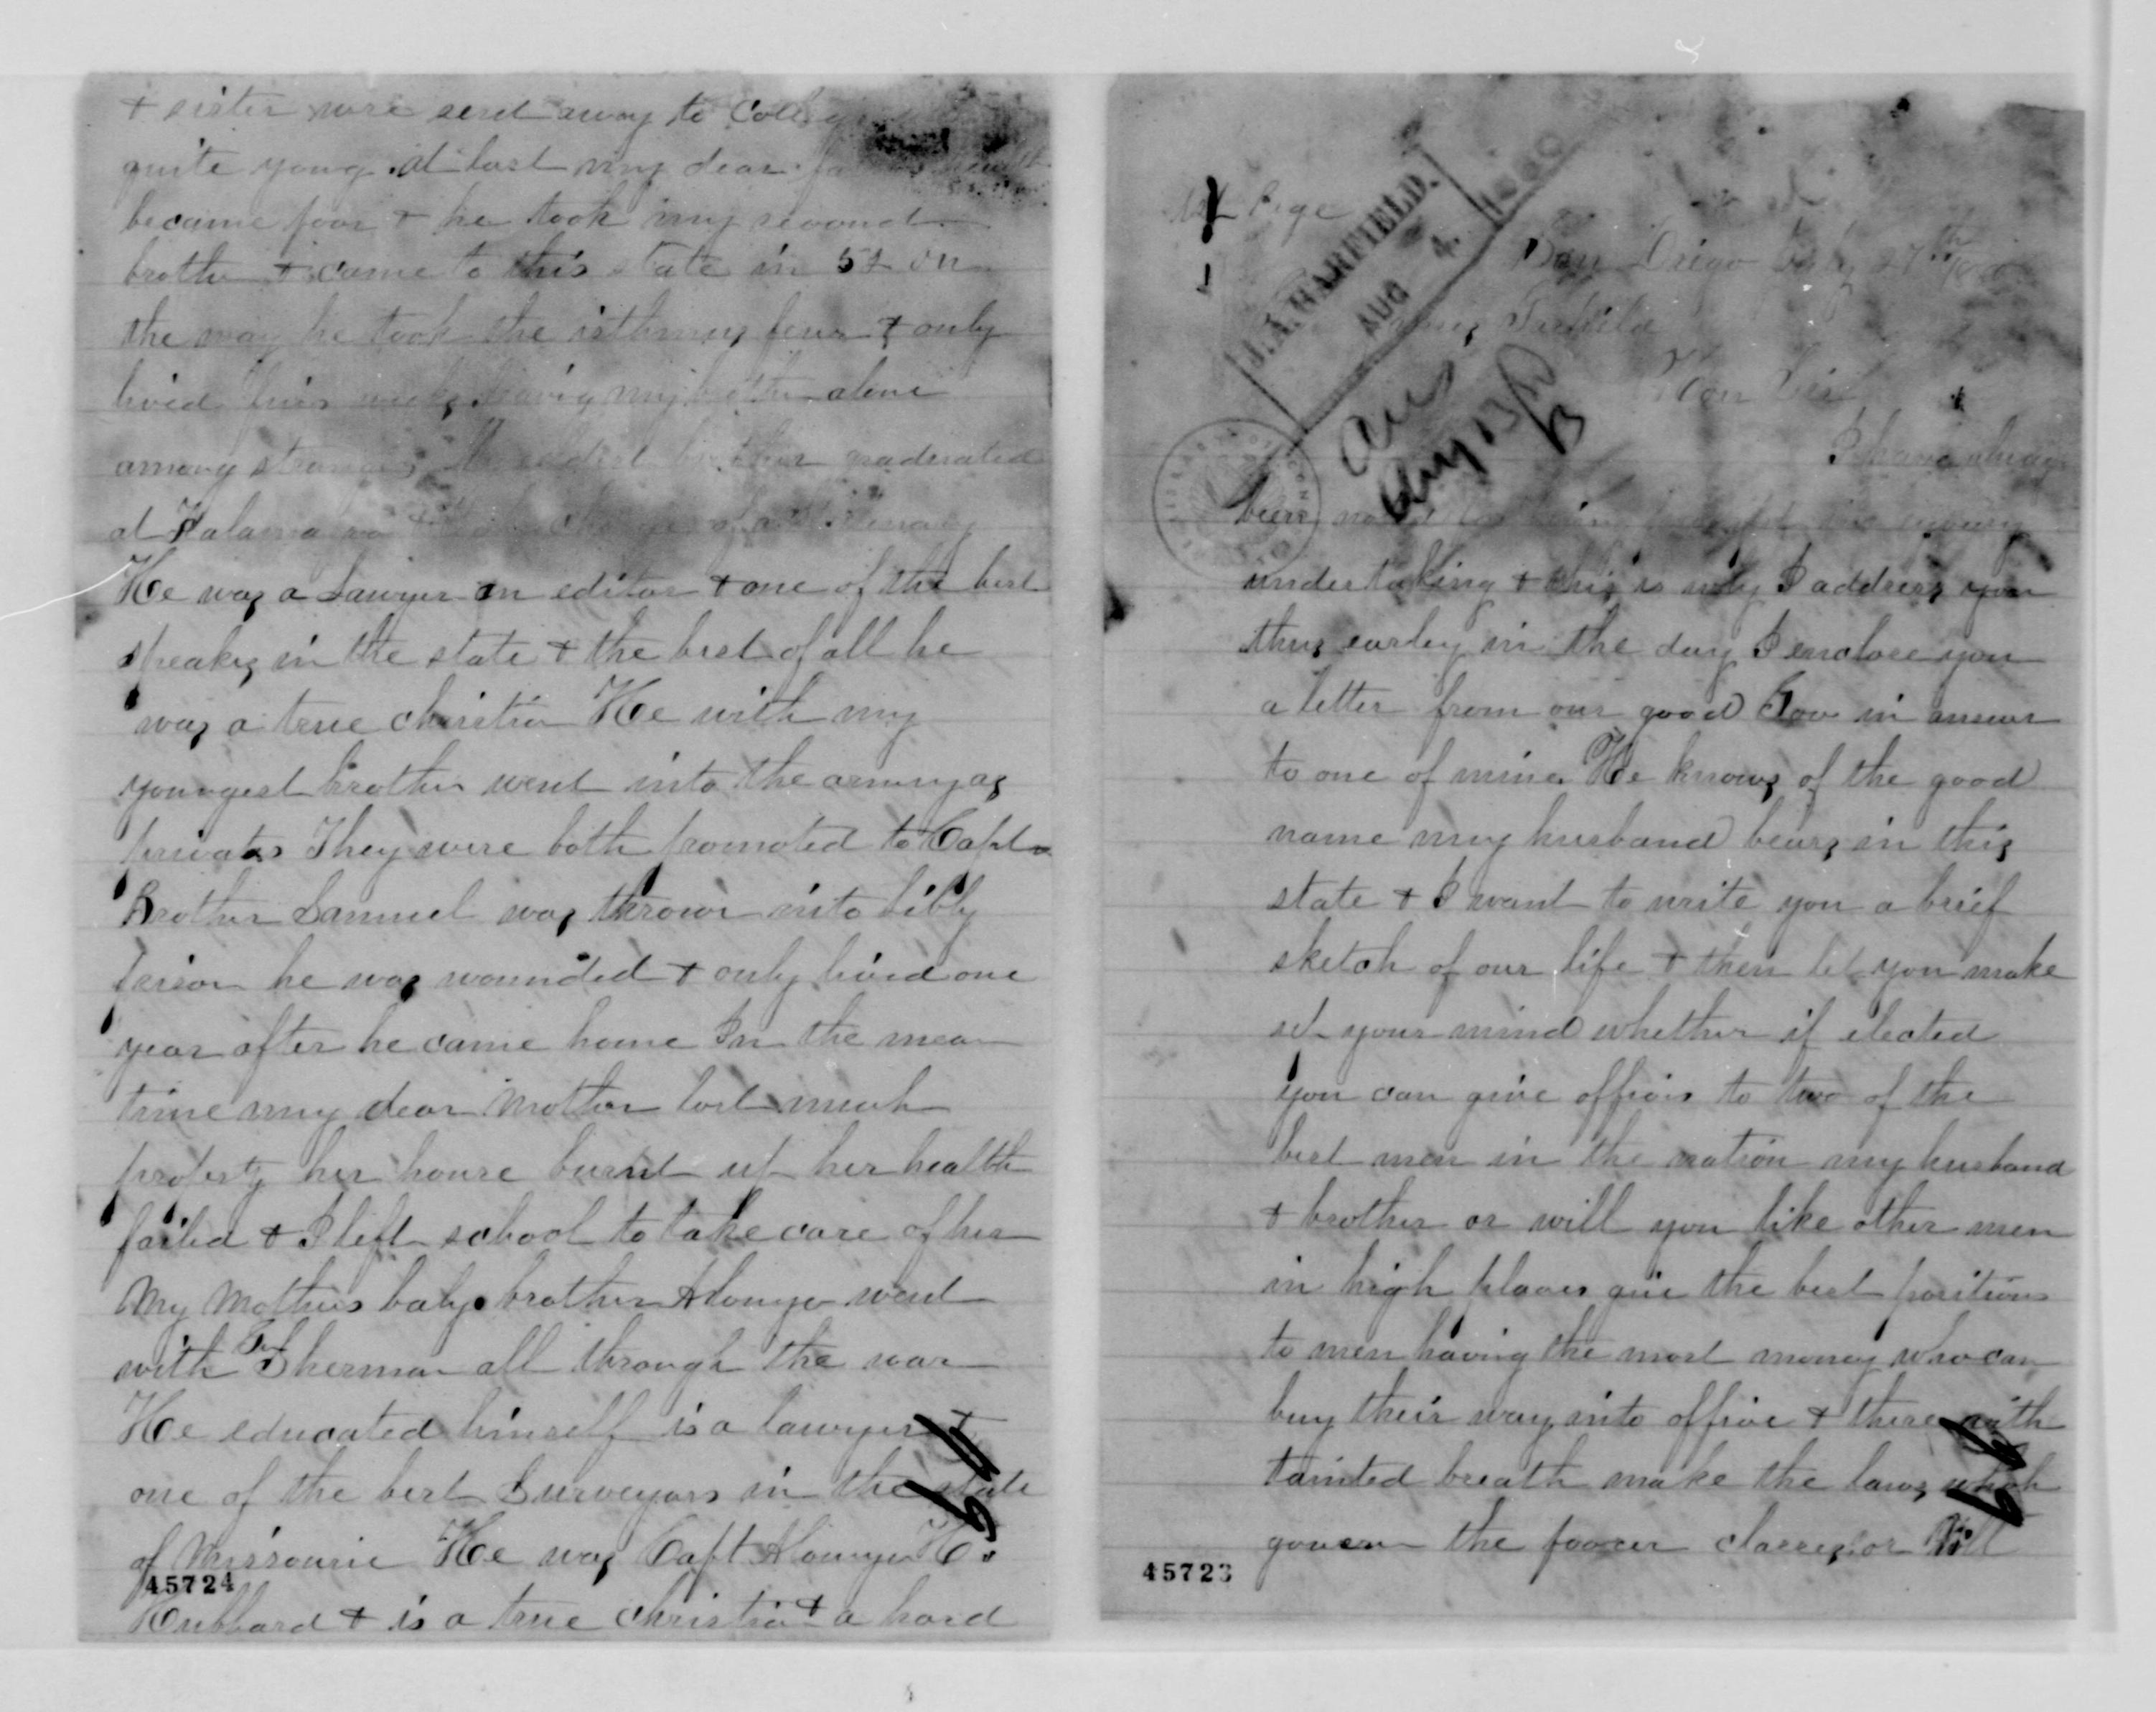 & sister were send away to
quite young. At last my dear
became poor & he took my second
brother & came to this state in 52 on
the way he took the isthmus fever & only
lived five weeks leaving my brother alone
among eldest brother graduated
at Kalamazoo
He was a Lawyer an editor & one of the best
speakes in the state & the best of all he
was a true christia He with my
youngest brother went into the army as
privates They were both promoted to Capt
Brother Samuel was thrown into Libby
prison he was wounded & only lived one
year after he came home In the mean
time my dear Mother lost much
property her house burnt up her health
failed & I left school to take care of her
My Mothers baby brother Alonzo went
with Sherman all through the war
He educated himself is a lawyer &
one of the best Surveyors in the state
of Missourie He was Capt Alonzo H.
45724
Hubbard & is a true christia & a hard
1st Page
J. A. GARFIELD.
AUG 4 1880
San Diego July 27th
Hon Sir
I have always
been
undertaking & this is why I address you
thus earley in the day I enclose you
a letter from our good Gov in answer
to one of mine. He knows of the good
name my husband bears in this
state & I want to write you a brief
sketch of our life & then let you make
up your mind whether if elected
you can give offices to two of the
best men in the nation my husband
& brother or will you like other men
in high places give the best positions
to men having the most money who can
buy their way into office & there with
tainted breath make the laws which
govern the poorer classes, or will
45723